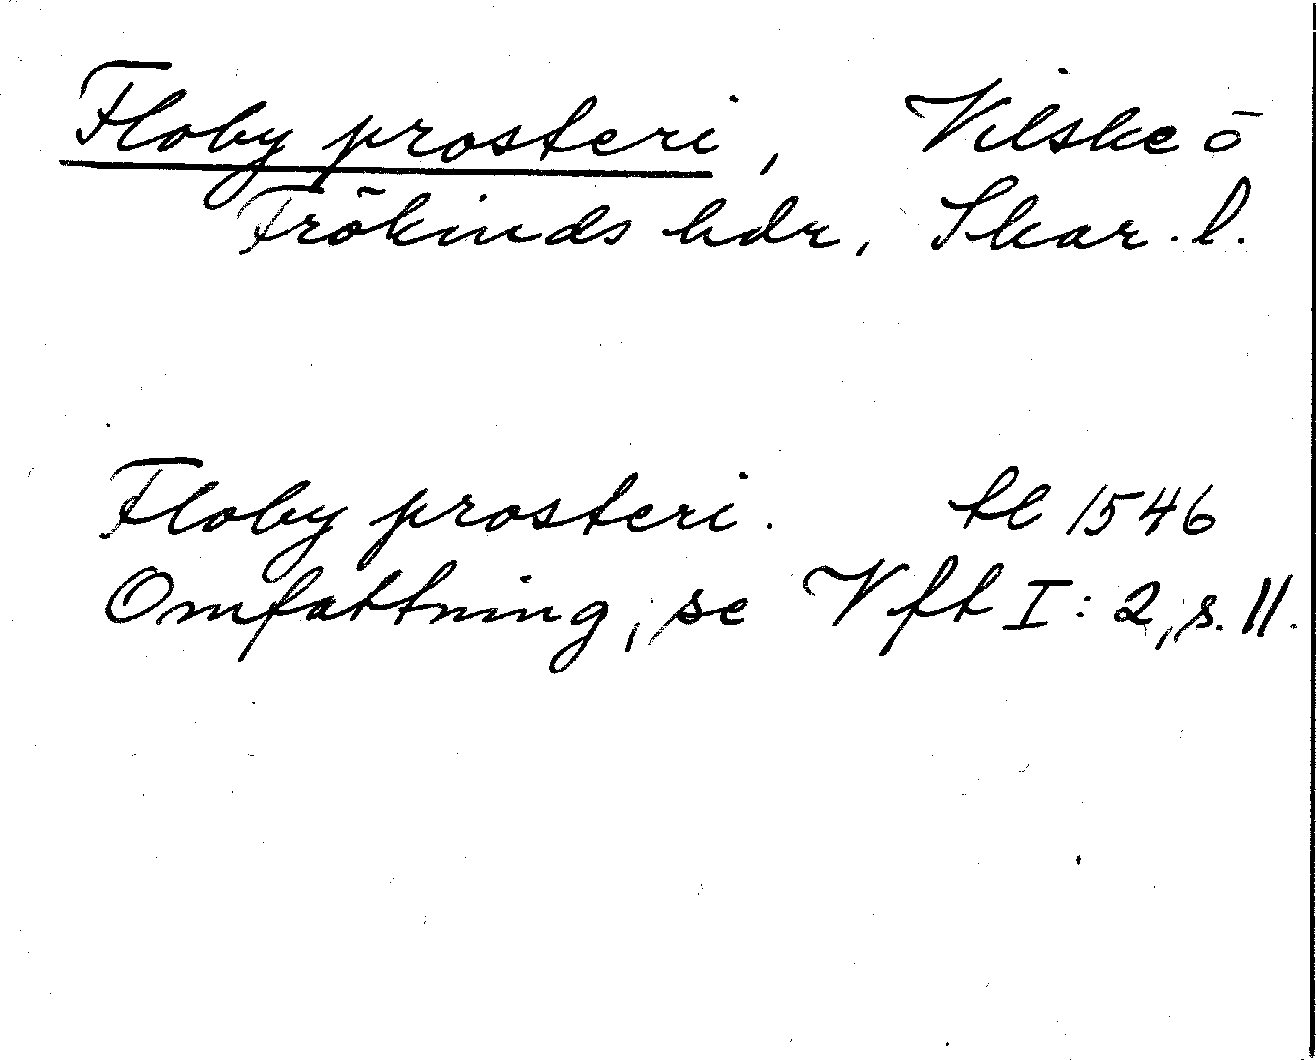 Floby prosteri, Vilske ō
Frökinds hdr, Skar. l.
Floby prosteri. tl 1546
Omfattning, se Vft I: 2, s. 11.